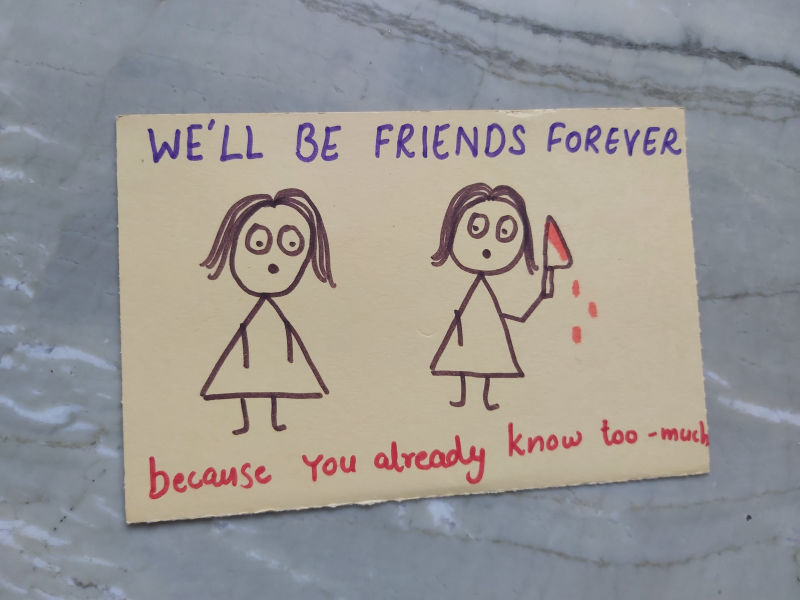 WE'LL BE FRIENDS FOREVER
because You already know too-much